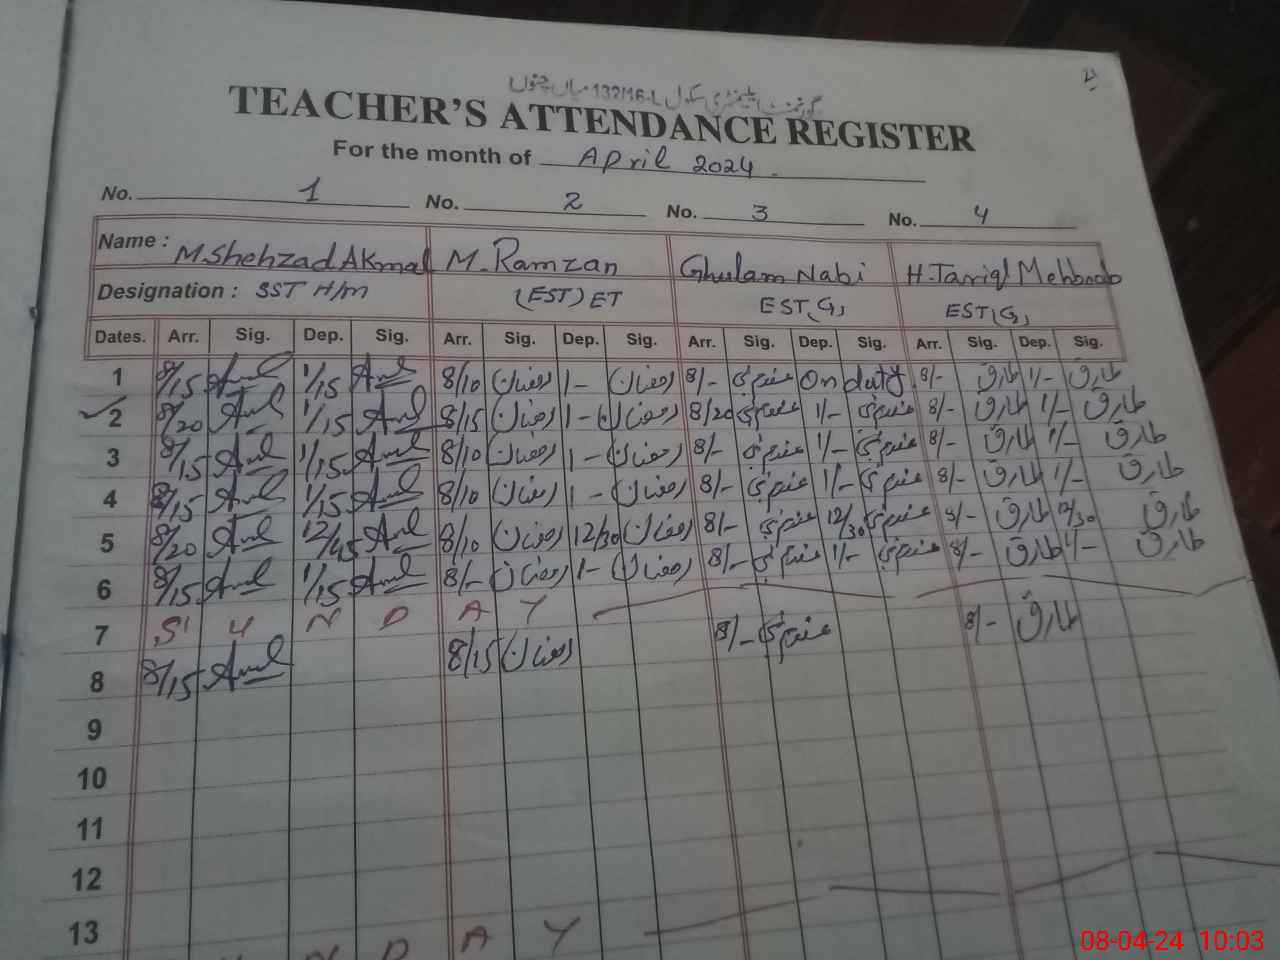 گورنمنٹ ایلیمنٹری سکول 132/16-L میاں چنوں
TEACHER'S ATTENDANCE REGISTER
For the month of April 2024.
No. 1 No. 2 No. 3 No. 4
Name : M.Shehzad Akmal M. Ramzan Ghulam Nabi H.Tariq Mehboob
Designation : SST H/m (EST) ET EST(G) EST(G)
Dates. Arr. Sig. Dep. Sig. Arr. Sig. Dep. Sig. Arr. Sig. Dep. Sig. Arr. Sig. Dep. Sig.
1 8/15 1/15 8/10 رمضان 1- رمضان 8/- On duty 8/- طارق 1/- طارق
2 8/20 1/15 8/15 رمضان 1- رمضان 8/20 1/- 8/- طارق 1/- طارق
3 8/15 1/15 8/10 رمضان 1- رمضان 8/- 1/- 8/- طارق 1/- طارق
4 8/15 1/15 8/10 رمضان 1- رمضان 8/- 1/- 8/- طارق 1/- طارق
5 8/20 12/45 8/10 رمضان 12/30 رمضان 8/- 12/30 8/- طارق 12/30 طارق
6 8/15 1/15 8/- رمضان 1- رمضان 8/- 1/- 8/- طارق 1/- طارق
7 S U N D A Y
8 8/15 8/15 رمضان 8/- 8/- طارق
9
10
11
12
13
N D A Y
08-04-24 10:03